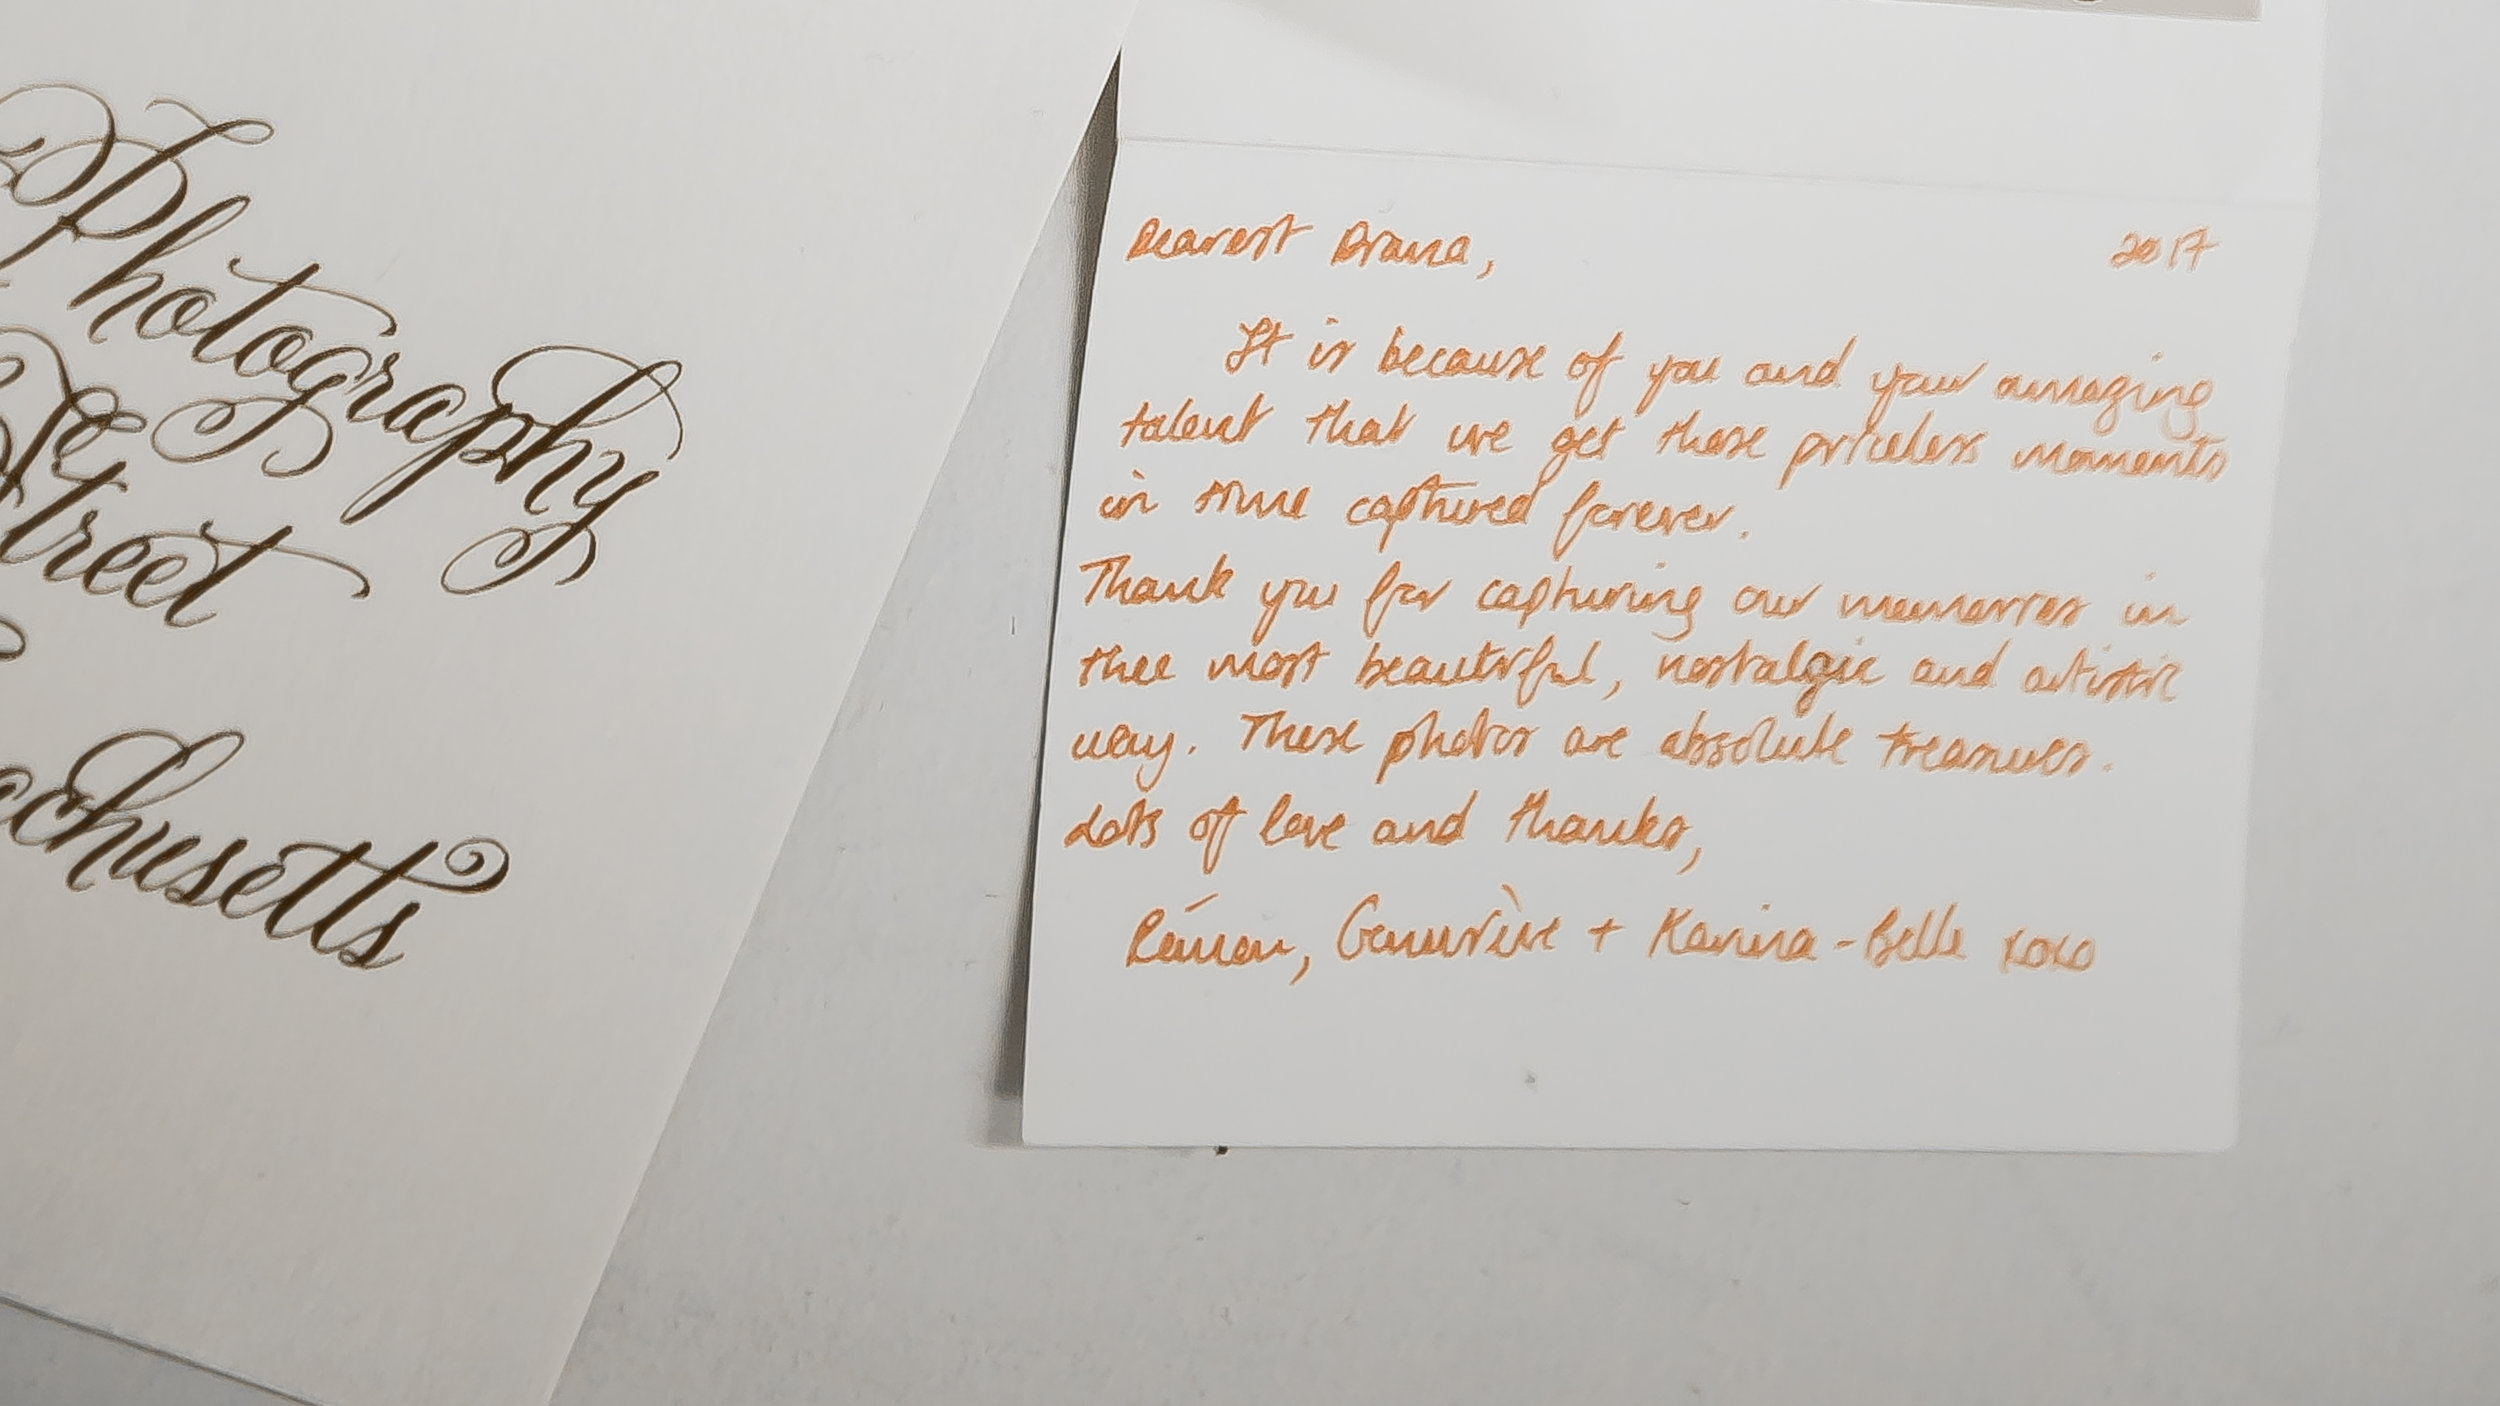 Photography
Street
chusetts
Dearest Briana, 2017
It is because of you and your amazing
talent that we get these priceless moments
in time captured forever.
Thank you for capturing our memories in
thee most beautiful, nostalgic and artistic
way. These photos are absolute treasures.
Lots of love and thanks,
Genevième + Karina-Belle xoxo